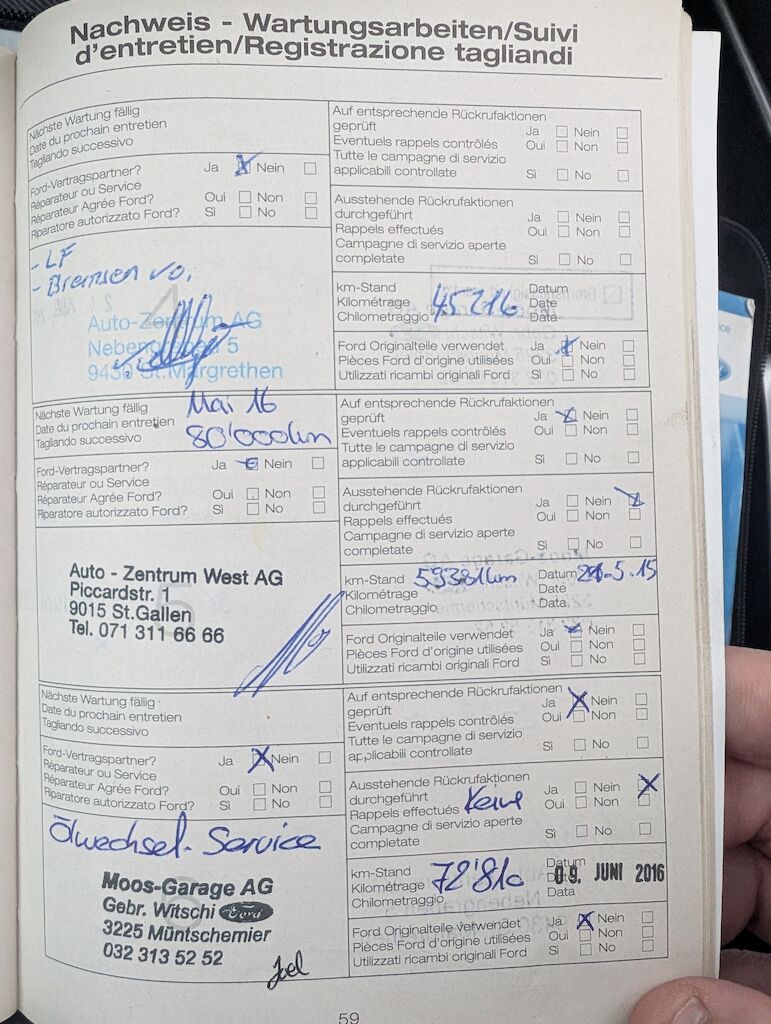 Nachweis - Wartungsarbeiten/Suivi
d'entretien/Registrazione tagliandi
Nächste Wartung fällig
Date du prochain entretien
Tagliando successivo
Ford-Vertragspartner? Ja Nein
Réparateur ou Service
Réparateur Agrée Ford? Oui Non
Riparatore autorizzato Ford? Sì No
- LF
- Bremsen vo.
Auto-Zentrum AG
Nebengraben 5
9430 St.Margrethen
Auf entsprechende Rückrufaktionen
geprüft Ja Nein
Eventuels rappels contrôlés Oui Non
Tutte le campagne di servizio
applicabili controllate Sì No
Ausstehende Rückrufaktionen
durchgeführt Ja Nein
Rappels effectués Oui Non
Campagne di servizio aperte
completate Sì No
km-Stand Datum
Kilométrage 45216 Date
Chilometraggio Data
Ford Originalteile verwendet Ja Nein
Pièces Ford d'origine utilisées Oui Non
Utilizzati ricambi originali Ford Sì No
Nächste Wartung fällig Mai 16
Date du prochain entretien
Tagliando successivo 80'000km
Ford-Vertragspartner? Ja Nein
Réparateur ou Service
Réparateur Agrée Ford? Oui Non
Riparatore autorizzato Ford? Sì No
Auto - Zentrum West AG
Piccardstr. 1
9015 St.Gallen
Tel. 071 311 66 66
Auf entsprechende Rückrufaktionen
geprüft Ja Nein
Eventuels rappels contrôlés Oui Non
Tutte le campagne di servizio
applicabili controllate Sì No
Ausstehende Rückrufaktionen
durchgeführt Ja Nein
Rappels effectués Oui Non
Campagne di servizio aperte
completate Sì No
km-Stand 59381km Datum
Kilométrage Date
Chilometraggio Data
Ford Originalteile verwendet Ja Nein
Pièces Ford d'origine utilisées Oui Non
Utilizzati ricambi originali Ford Sì No
Nächste Wartung fällig
Date du prochain entretien
Tagliando successivo
Ford-Vertragspartner? Ja Nein
Réparateur ou Service
Réparateur Agrée Ford? Oui Non
Riparatore autorizzato Ford? Sì No
Ölwechsel-Service
Moos-Garage AG
Gebr. Witschi Ford
3225 Müntschemier
032 313 52 52
Joel
Auf entsprechende Rückrufaktionen
geprüft Ja Nein
Eventuels rappels contrôlés Oui Non
Tutte le campagne di servizio
applicabili controllate Sì No
Ausstehende Rückrufaktionen
durchgeführt Ja Nein
Rappels effectués Keine Oui Non
Campagne di servizio aperte
completate Sì No
km-Stand Datum
Kilométrage 72'810 Date 09. JUNI 2016
Chilometraggio Data
Ford Originalteile verwendet Ja Nein
Pièces Ford d'origine utilisées Oui Non
Utilizzati ricambi originali Ford Sì No
59